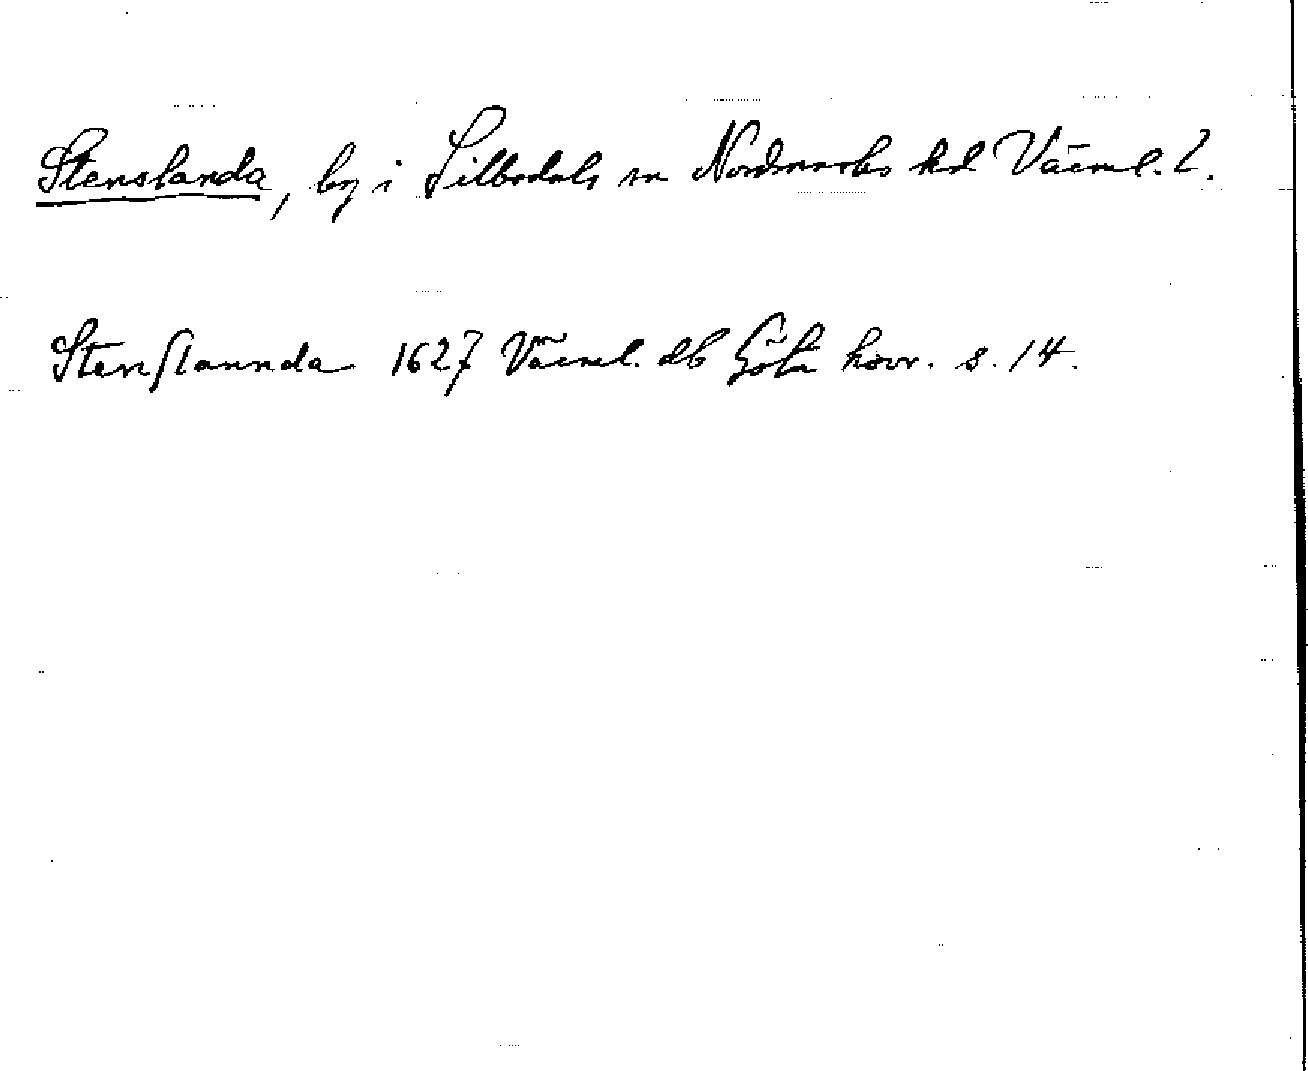 Stenslanda, by i Silbodals sn Nordmarks hd Värml. l.
Stenſlannda 1627 Värml. db Göta hovr. s. 14.